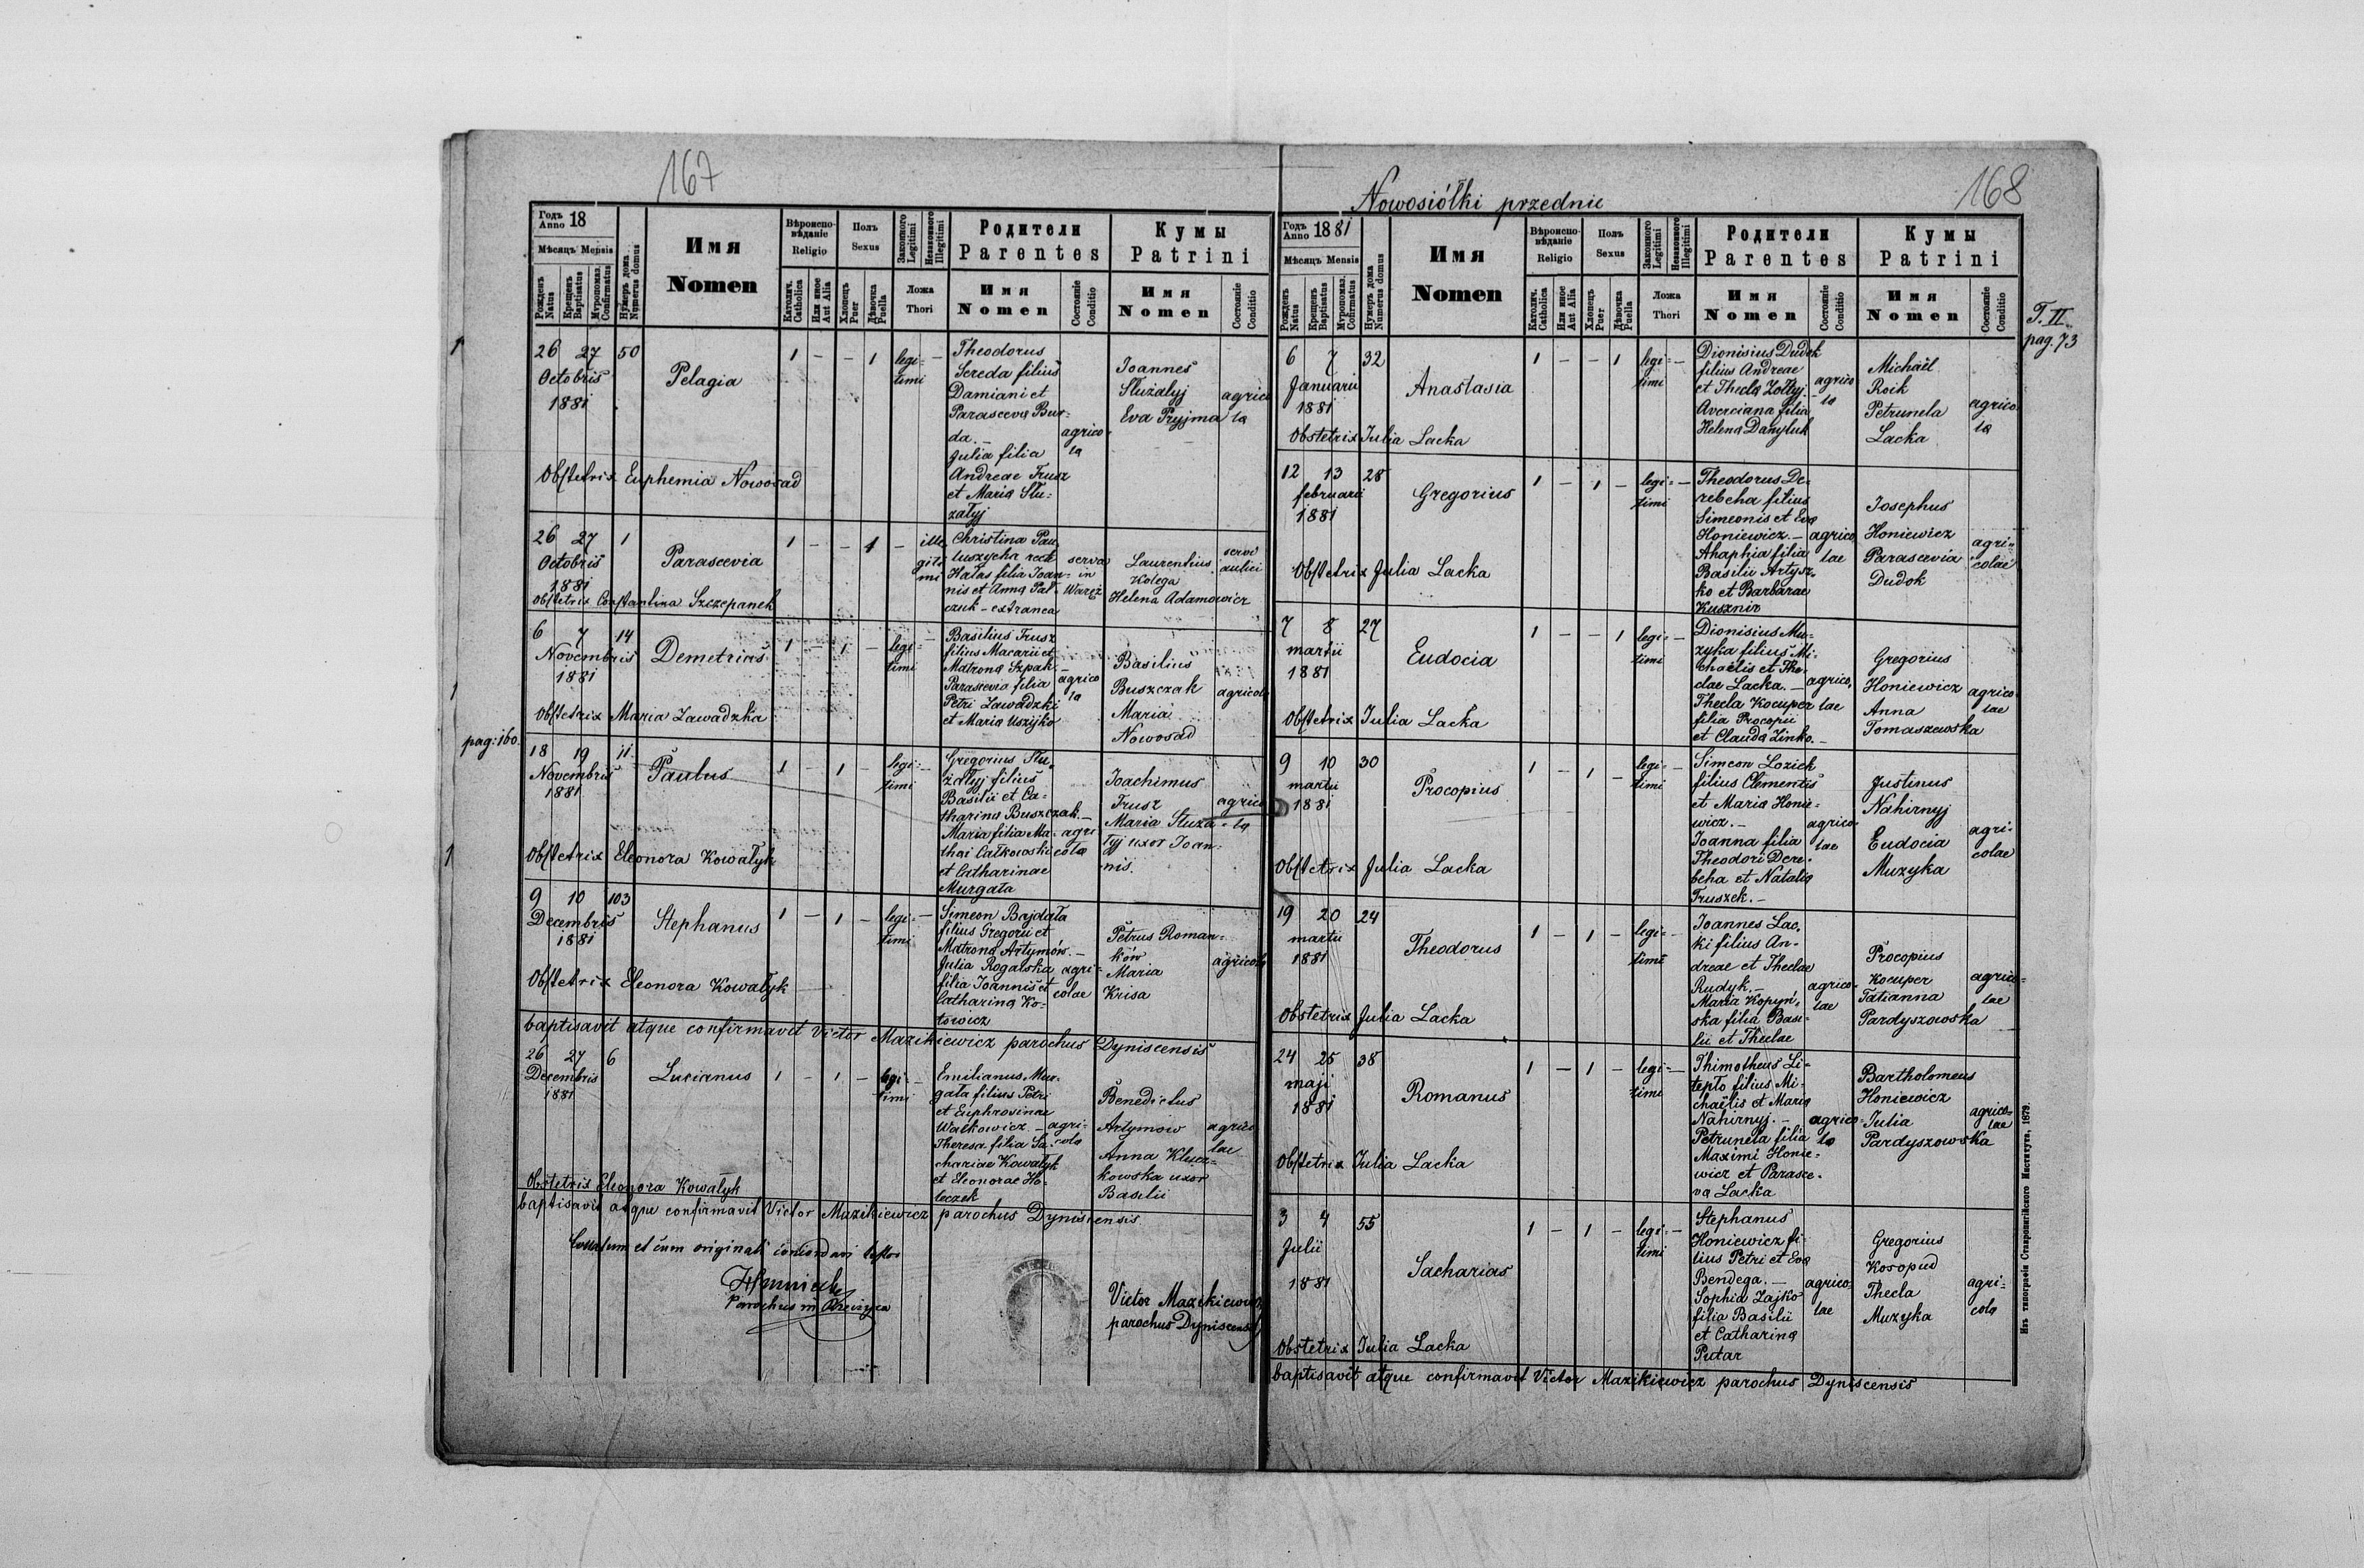 167
Годъ Anno 18
Мѣсяцъ Mensis
Рожденъ Natus
Крещенъ Baptisatus
Мѵропомаз. Confirmatus
Нумеръ дома Numerus domus
Имя
Nomen
Вѣроисповѣданіе
Religio
Католич. Catholica
Или иное Aut Alia
Полъ
Sexus
Хлопецъ Puer
Дѣвочка Puella
Законного Legitimi
Незаконного Illegitimi
Ложа
Thori
Родители
Parentes
Имя
Nomen
Состояніе Conditio
Кумы
Patrini
Имя
Nomen
Состояніе Conditio
1
26 27 50
Octobris
1881
Pelagia
1 – – 1
legi= –
timi
Theodorus
Sereda filius
Damiani et
Parasceva Bur=
da. –
Julia filia
Andreae Trusz
et Maria Słu=
załyj
agrico
la
Joannes
Służalyj
Eva Pryjma
agrico
la
Obstetrix Euphemia Nowosad
26 27 1
Octobris
1881
Parascevia
1 – – 1
– ille
giti
mi
Christina Pau
luszycha recte
Hałas filia Joan=
nis et Anna Pal
czuk – extranea
serva
in
Waręż
Laurentius
Kolega
Helena Adamowicz
servi
aulici
Obstetrix Constantina Szczepanek
6 7 14
Novembris
1881
Demetrius
1 – 1 –
legi= –
timi
Basilius Trusz
filius Macarii et
Matrona Szpak –
Parascevia filia
Petri Zawadzki
et Maria Uszyjko
agrico
la
Basilius
Buszczak
Maria
Nowosad
agricola
Obstetrix Maria Zawadzka
1
pag: 160.
18 19 11
Novembris
1881
Paulus
1 – 1 –
legi= –
timi
Gregorius Słu=
żałyj filius
Basilii et Ca=
tharina Buszczak. –
Maria filia Ma=
thai Całkowski
et Catharinae
Murgała
agri
cola
Joachimus
Trusz
Maria Służa=
łyj uxor Joan=
nis.
agrico
la
Obstetrix Eleonora Kowałyk
1
9 10 103
Decembris
1881
Stephanus
1 – 1 –
legi= –
timi
Simeon Bajdała
filius Gregorii et
Matrona Artymów. –
Julia Rogalska
filia Joannis et
Catharina Ko=
towicz
agri=
colae
Petrus Roman=
ków
Maria
Krisa
agricola
Obstetrix Eleonora Kowałyk
baptisavit atque confirmavit Victor Mazikiewicz parochus Dyniscensis
26 27 6
Decembris
1881
Lucianus
1 – 1 –
legi –
timi
Emilianus Mur=
gała filius Petri
et Euphrosinae
Wałkowicz –
Theresa filia Sa=
chariae Kowałyk
et Eleonorae Ho=
leczek
agri=
cola
Benedictus
Artymow
Anna Klucz=
kowska uxor
Basilii
agrico
lae
Obstetrix Eleonora Kowałyk
baptisavit atque confirmavit Victor Mazikiewicz parochus Dyniscensis
et cum originali
Parochus in
Victor Mazikiewicz
parochus Dyniscensis
168
Nowosiółki przednie
Годъ Anno 1881
Мѣсяцъ Mensis
Рожденъ Natus
Крещенъ Baptisatus
Мѵропомаз. Confirmatus
Нумеръ дома Numerus domus
Имя
Nomen
Вѣроисповѣданіе
Religio
Католич. Catholica
Или иное Aut Alia
Полъ
Sexus
Хлопецъ Puer
Дѣвочка Puella
Законного Legitimi
Незаконного Illegitimi
Ложа
Thori
Родители
Parentes
Имя
Nomen
Состояніе Conditio
Кумы
Patrini
Имя
Nomen
Состояніе Conditio
T. II.
pag. 73
6 7 32
Januarii
1881
Anastasia
1 – – 1
legi= –
timi
Dionisius Dudok
filius Andreae
et Thecla Zołtyj. –
Averciana filia
Helena Danyluk
agrico
la
Michaël
Roik
Petrunela
Lacka
agrico
la
Obstetrix Julia Lacka
12 13 28
februarii
1881
Gregorius
1 – 1 –
legi= –
timi
Theodorus De=
rebcha filius
Simeonis et Eva
Honiewicz. –
Ahaphia filia
Basilii Artysz=
ko et Barbarae
Kusznir
agrico
lae
Josephus
Honiewicz
Parascevia
Dudok
agri=
colae
Obstetrix Julia Lacka
7 8 27
martii
1881
Eudocia
1 – – 1
legi= –
timi
Dionisius Mu=
zyka filius Mi=
chaëlis et The=
clae Lacka. –
Thecla Kocuper
filia Procopii
et Clauda Zinko. –
agrico,
lae
Gregorius
Honiewicz
Anna
Tomaszewska
agrico
lae
Obstetrix Julia Lacka
9 10 30
martii
1881
Procopius
1 – 1 –
legi= –
timi
Simeon Loziek
filius Clementis
et Maria Honie=
wicz. –
Joanna filia
Theodori Dere=
bcha et Natalia
Truszek. –
agrico=
lae
Justinus
Nahirnyj
Eudocia
Muzyka
agri=
colae
Obstetrix Julia Lacka
19 20 24
martii
1881
Theodorus
1 – 1 –
legi= –
timi
Joannes Lac,
ki filius An=
dreae et Theclae
Rudyk. –
Maria Kopyń,
ska filia Basi=
lii et Theclae
agrico=
lae
Procopius
Kocuper
Tatianna
Pardyszowska
agrico=
lae
Obstetrix Julia Lacka
24 25 38
maji
1881
Romanus
1 – 1 –
legi= –
timi
Thimotheus Li=
tepło filius Mi=
chaëlis et Maria
Nahirnyj. –
Petrunela filia
Maximi Honie=
wicz et Parasce=
va Lacka
agrico
la
Bartholomeus
Honiewicz
Julia
Pardyszowska
agrico=
lae
Obstetrix Julia Lacka
3 4 55
Julii
1881
Sacharias
1 – 1 –
legi= –
timi
Stephanus
Honiewicz fi=
lius Petri et Eva
Bendega. –
Sophia Zajko
filia Basilii
et Catharina
Putar
agrico=
lae
Gregorius
Kosopud
Thecla
Muzyka
agri=
cola
Obstetrix Julia Lacka
baptisavit atque confirmavit Victor Mazikiewicz parochus Dyniscensis
Изъ типографіи Ставропигійского Института, 1879.